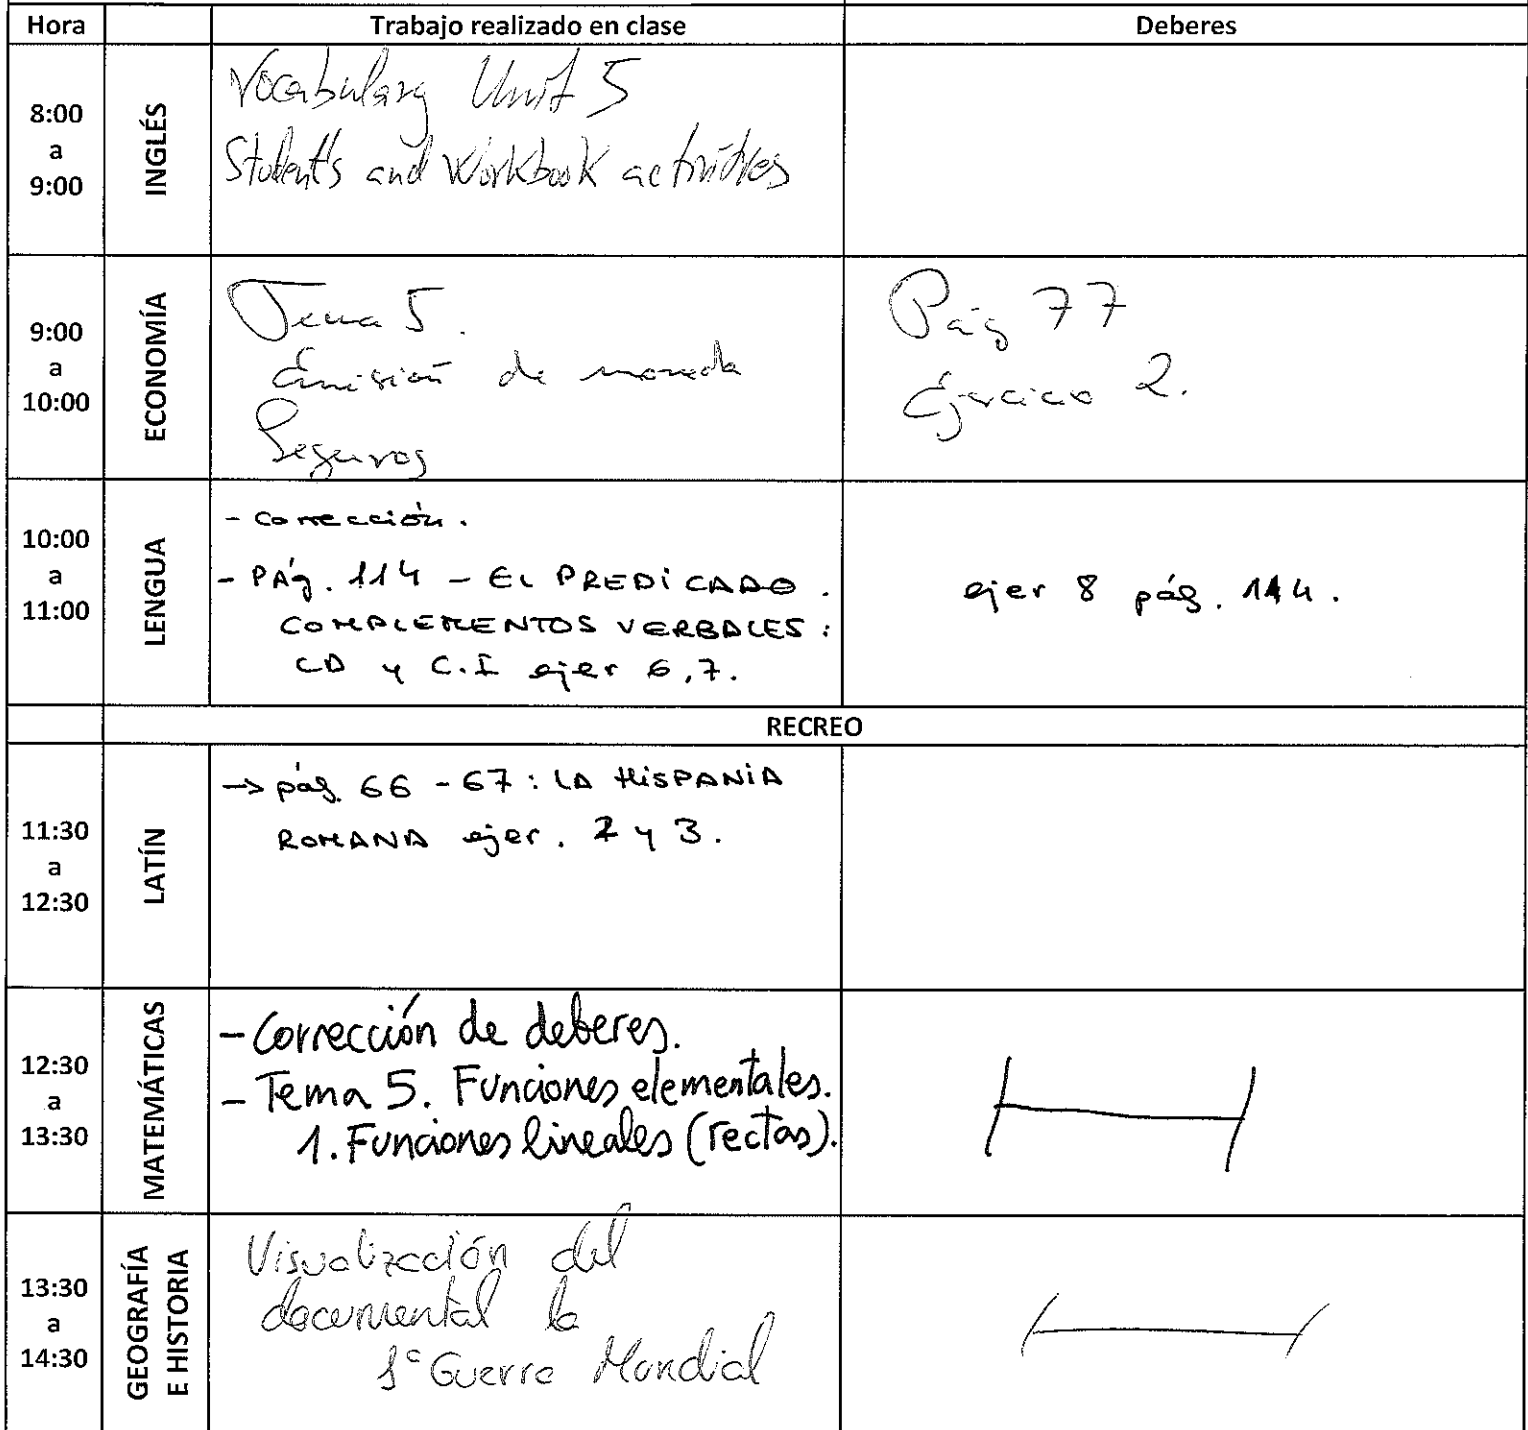 Hora Trabajo realizado en clase Deberes
8:00 a 9:00
INGLÉS
Vocabulary Unit 5
Student's and Workbook activities
9:00 a 10:00
ECONOMÍA
Tema 5.
Emisión de moneda
Seguros
Pág 77
Ejercicio 2.
10:00 a 11:00
LENGUA
- corrección.
- PÁg. 114 - EL PREDICADO.
COMPLEMENTOS VERBALES:
CD y C.I ejer 6,7.
ejer 8 pág. 114.
RECREO
11:30 a 12:30
LATÍN
→ pág. 66 - 67: LA HISPANIA
ROMANA ejer. 2 y 3.
12:30 a 13:30
MATEMÁTICAS
- Corrección de deberes.
- Tema 5. Funciones elementales.
1. Funciones lineales (rectas).
13:30 a 14:30
GEOGRAFÍA
E HISTORIA
Visualización del
documental la
1ª Guerra Mundial